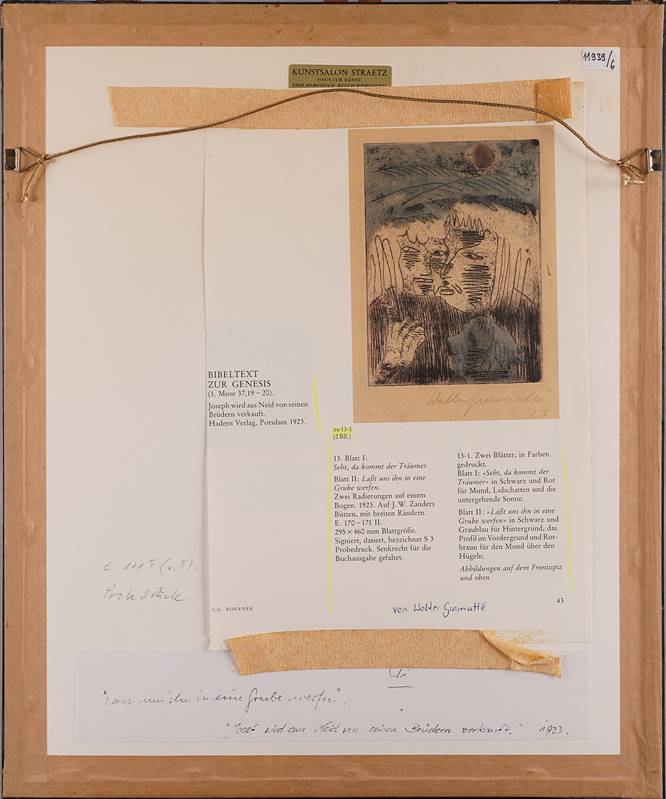 11939/6
KUNSTSALON STRAETZ
HAUS ZUR KUNST
EINRAHMUNGEN RESTAURIERUNGEN
Walter Gramatté
23
BIBELTEXT
ZUR GENESIS
(1. Mose 37,19 – 20).
Joseph wird aus Neid von seinen
Brüdern verkauft.
Hadern Verlag, Potsdam 1923.
zu 13-1
(2 Bll.)
13. Blatt I:
Seht, da kommt der Träumer.
Blatt II: Laßt uns ihn in eine
Grube werfen.
Zwei Radierungen auf einem
Bogen. 1923. Auf J. W. Zanders
Bütten, mit breiten Rändern.
E. 170 – 171 II.
295 × 460 mm Blattgröße.
Signiert, datiert, bezeichnet S 3
Probedruck. Senkrecht für die
Buchausgabe gefaltet.
13-1. Zwei Blätter, in Farben
gedruckt.
Blatt I: »Seht, da kommt der
Träumer« in Schwarz und Rot
für Mund, Lidschatten und die
untergehende Sonne.
Blatt II: »Laßt uns ihn in eine
Grube werfen« in Schwarz und
Graublau für Hintergrund, das
Profil im Vordergrund und Rot-
braun für den Mond über den
Hügeln.
Abbildungen auf dem Frontispiz
und oben
E. 171 II (v. II).
Probedruck
C.G. BOERNER
von Walter Gramatté
43
"Lasst uns ihn in eine Grube werfen".
"Josef wird aus Neid von seinen Brüdern verkauft." 1923.